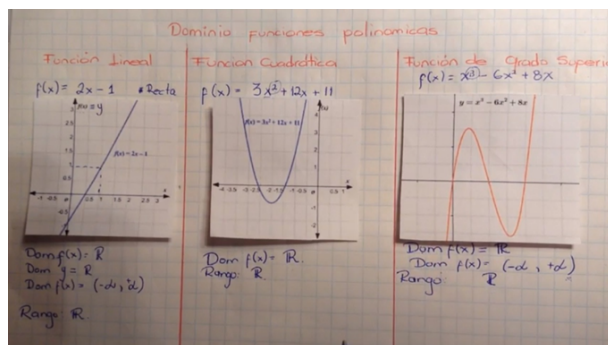 Dominio funciones polinomicas
Función Lineal
f(x) = 2x - 1 • Recta
f(x) = y
f(x) = 2x - 1
Dom f(x): R
Dom y = R
Dom f(x) = (-∞, ∞)
Rango R
Funcion Cuadrática
f(x) = 3x² + 12x + 11
f(x) = 3x² + 12x + 11
Dom f(x) = R.
Rango: R.
Función de Grado Superi
f(x) = x³ - 6x² + 8x
y = x³ - 6x² + 8x
Dom f(x) = R
Dom f(x) = (-∞, +∞)
Rango: R